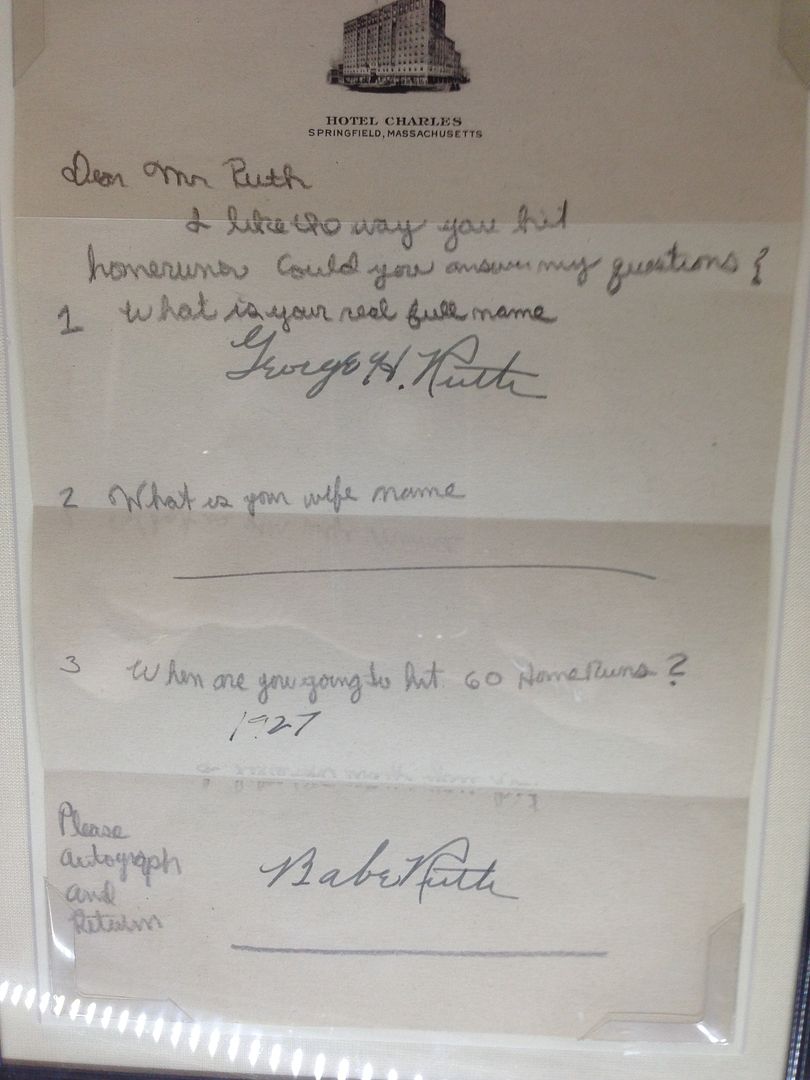 HOTEL CHARLES
SPRINGFIELD, MASSACHUSETTS
Dear Mr Ruth
I like the way you hit
homeruns Could you answer my questions
1 What is your real full name
George H. Ruth
2 What is your wife name
3 When are you going to hit 60 Home Runs?
1927
Please
autograph
and
Return
Babe Ruth